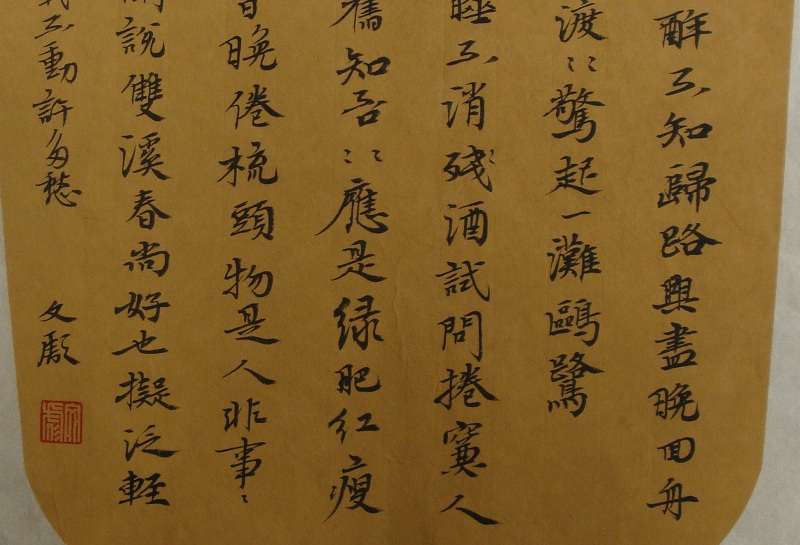 醉不知歸路興盡晚回舟
渡〻驚起一灘鷗鷺
睡不消殘酒試問捲簾人
舊知否〻應是緑肥红瘦
晚倦梳頭物是人非事〻
聞說雙溪春尚好也擬泛輕
不動許多愁
文